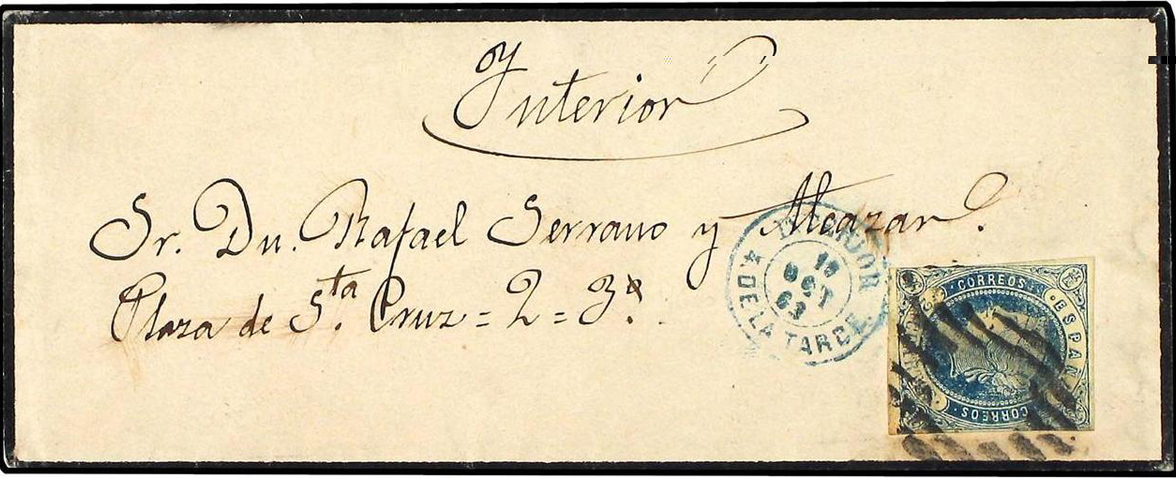 Interior
Sr. Dn. Rafael Serrano y Alcazar.
Plaza de Sta. Cruz = 2 = 3º.
INTERIOR
18
OCT
63
4 DE LA TARDE
CORREOS
ESPAÑA
CORREOS